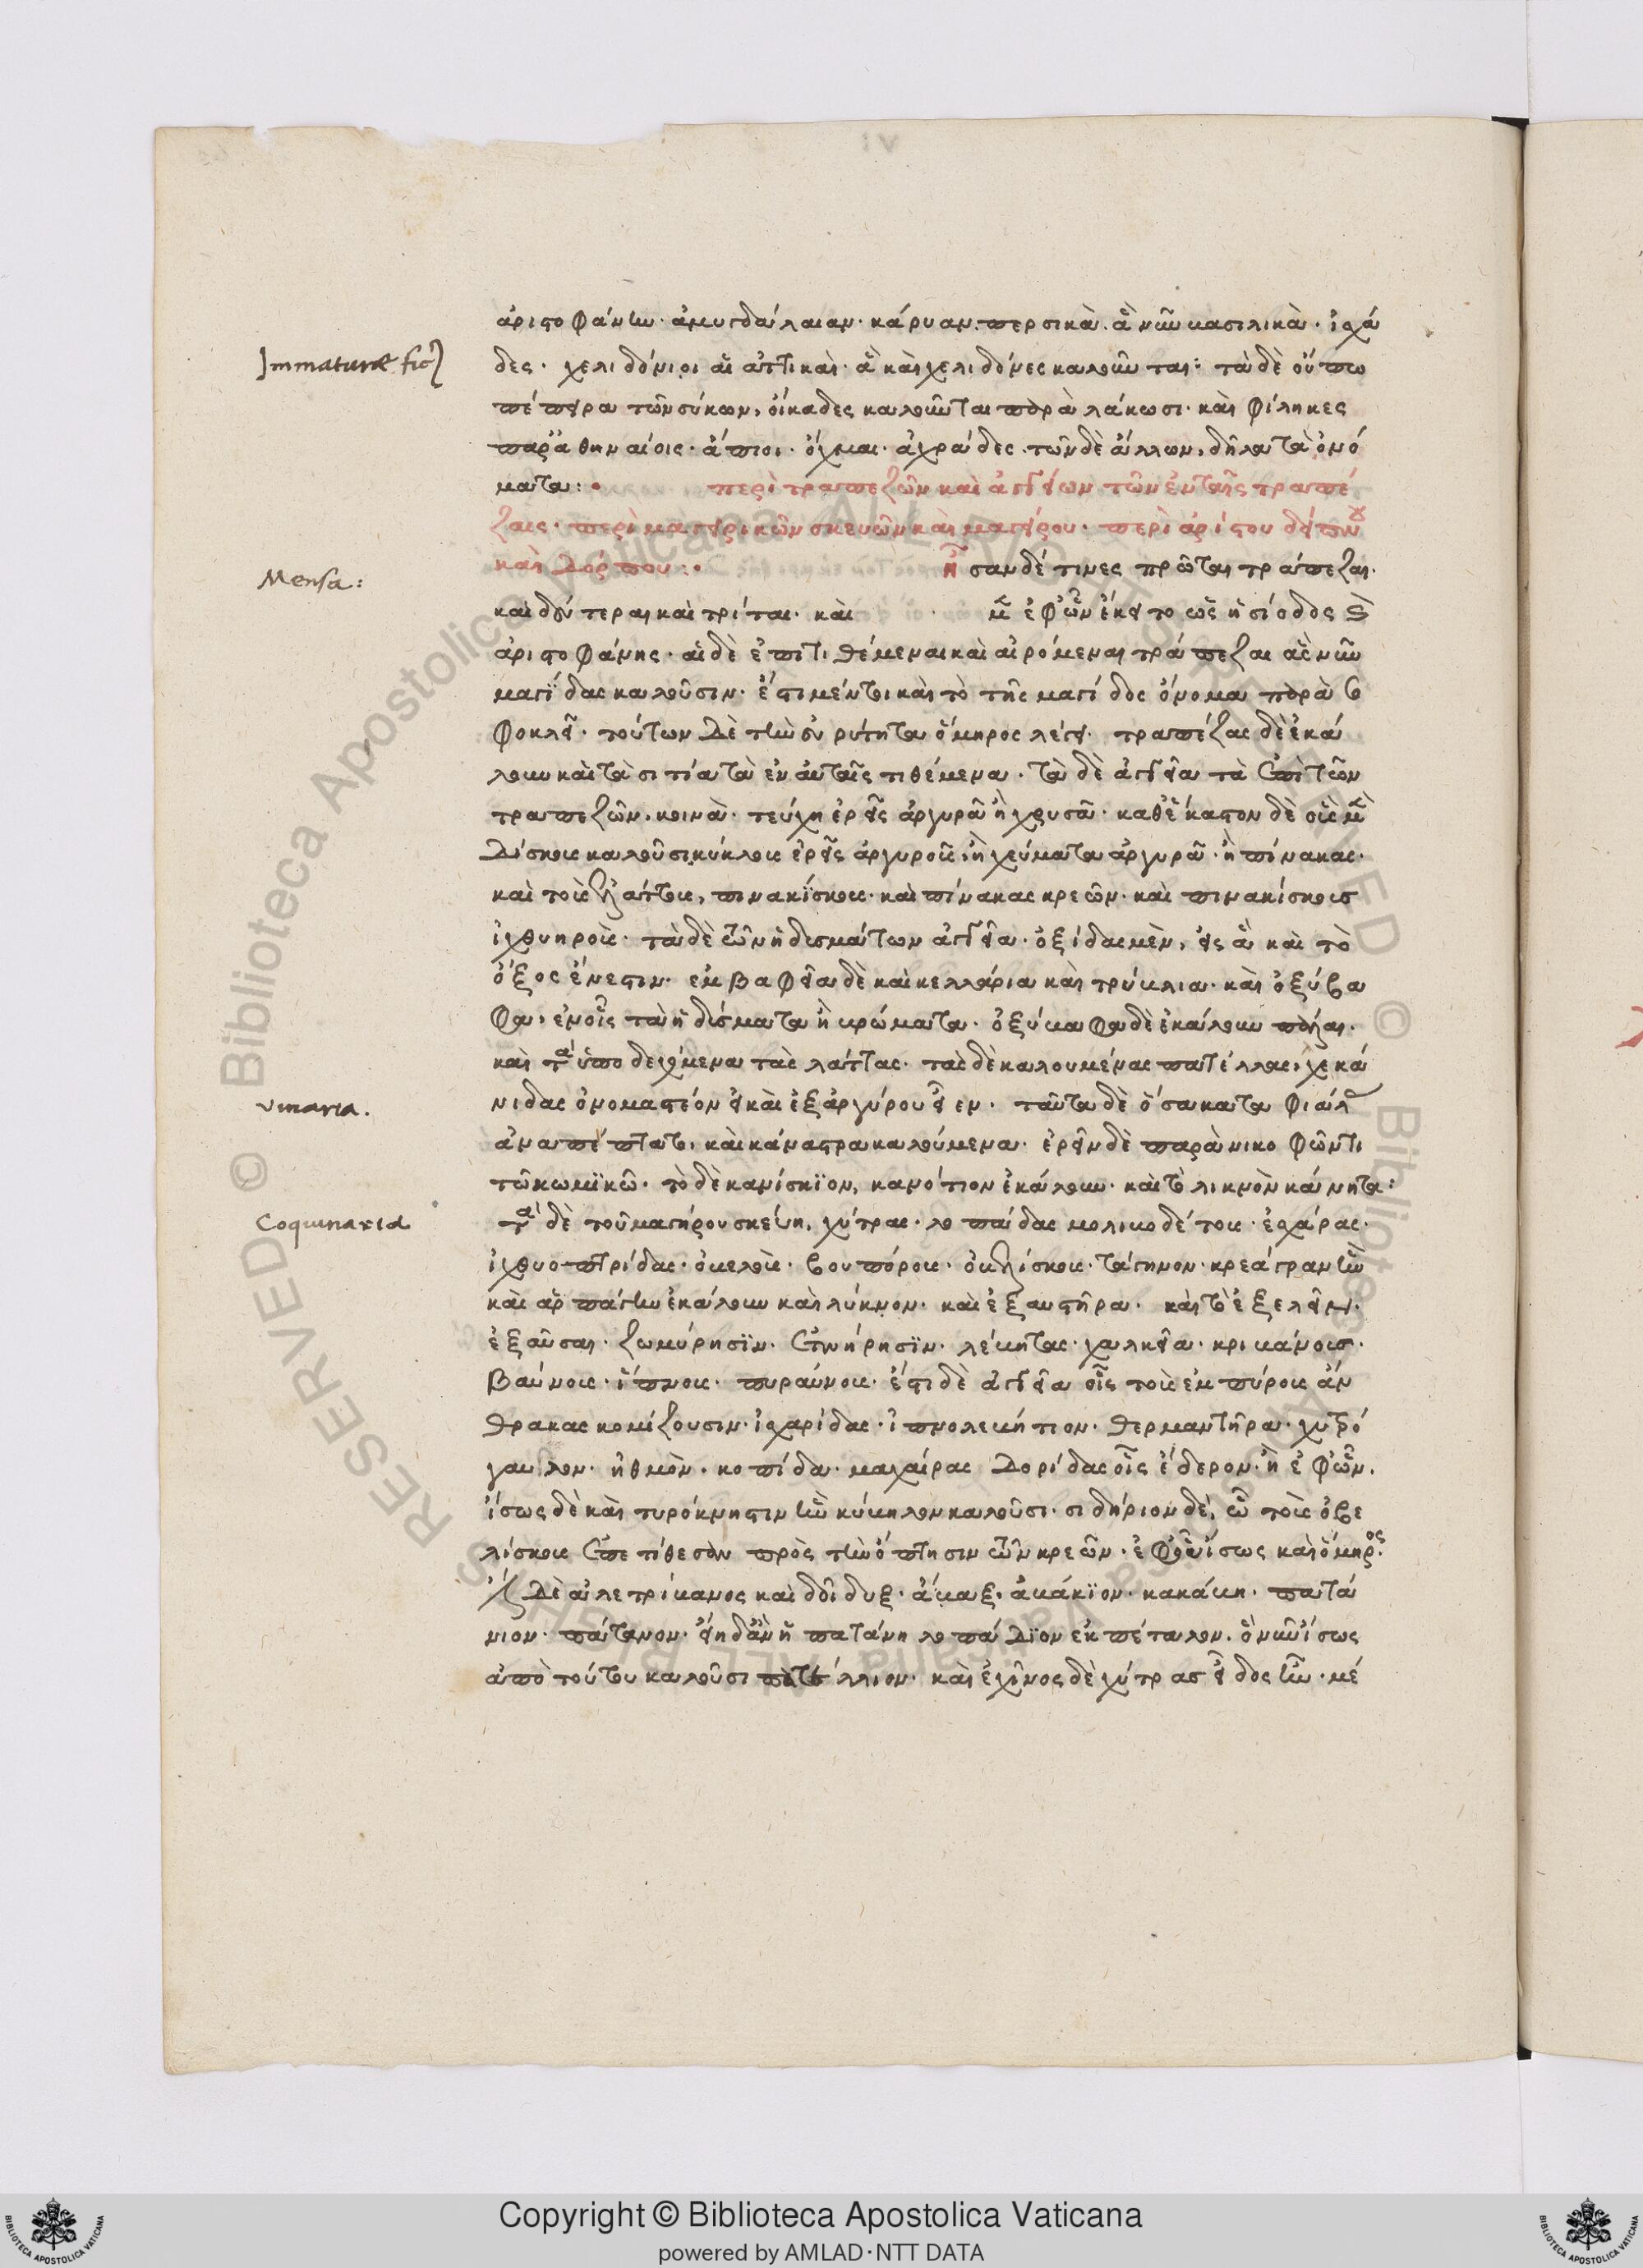 ἀριστοφάνην· ἀμυγδάλαιαν· κάρυαν. περσικὰ. ἃ νῦν βασιλικὰ· ἰσχά
Immaturæ fic
δες· χελιδόνιοι αἱ ἀττικαὶ· ἃ καὶ χελιδόνες καλοῦνται: τὰ δὲ οὔπω
πέπειρα τῶν σύκων, οἴκαδες καλοῦνται παρὰ λάκωσι· καὶ φίληκες
παρ' ἀθηναίοις· ἄπιοι· ὄχναι· ἀχράδες· τῶν δὲ ἄλλων, δῆλα τὰ ὀνό
ματα:· περὶ τραπεζῶν καὶ ἀγγείων τῶν ἐν ταῖς τραπέ
ζαις· περὶ μαγειρικῶν σκευῶν καὶ μαγείρου· περὶ ἀρίστου δείπνου
καὶ δόρπου:· ἦσαν δέ τινες πρῶται τράπεζαι·
Mensa:
καὶ δεύτεραι καὶ τρίται· καὶ ἐφ' ὧν ἔκειτο ὡς ἡσίοδος
ἀριστοφάνης· αἱ δὲ ἐπιτιθέμεναι καὶ αἰρόμεναι τράπεζαι ἃς νῦν
μαγίδας καλοῦσιν· ἔστι μέντοι καὶ τὸ τῆς μαγίδος ὄνομα παρὰ σο
φοκλεῖ· τούτων δὲ τὴν εὐρύτητα ὅμηρος λέγει· τραπέζας δὲ ἐκά
λουν καὶ τὰ σιτία τὰ ἐν αὐταῖς τιθέμενα· τὰ δὲ ἀγγεῖα τὰ ἐπὶ τῶν
τραπεζῶν· κοινὰ· τεύχη ἐρεῖς ἀργυρᾶ ἢ χρυσᾶ· καθ' ἕκαστον δὲ
δίσκους καλοῦσι κύκλους ἐρεῖς ἀργυροῦς· ἢ χεύματα ἀργυρᾶ· ἢ πίνακας·
καὶ τοὺς ἐλάττους, πινακίσκους· καὶ πίνακας κρεῶν· καὶ πινακίσκους
ἰχθυηροὺς· τὰ δὲ τῶν ἡδυσμάτων ἀγγεῖα· ὀξίδας μὲν, εἰς ἃ καὶ τὸ
ὄξος ἔνεστιν· ἐμβαφεῖα δὲ καὶ κελλάρια καὶ τρύβλια· καὶ ὀξύβα
φα· ἐν οἷς τὰ ἡδύσματα ἢ βρώματα· ὀξύβαφα δὲ ἐκάλουν
καὶ τὰ ὑποδεχόμενα τὰς λάτγας· τὰς δὲ καλουμένας πατέλλας, λεκα
νίδας ὀνομαστέον εἰ καὶ ἐξ ἀργύρου εἶεν· ταῦτα δὲ ὅσα κατὰ
vinaria.
ἀναπέπταται, καὶ κάναστρα καλούμενα· ἐρεῖν δὲ παρὰ νικοφῶντι
τῷ κωμϊκῷ· τὸ δὲ κανίσκϊον, κανότιον ἐκάλουν· καὶ τὸ λικνὸν κάνητα:
Coquinaria
τὰ δὲ τοῦ μαγείρου σκεύη, χύτρας· λοπάδας μολιβδέτους· ἐσχάρας·
ἰχθυοπτρίδας· ὀβελοὺς· βουπόρους· ὀβελίσκους· τάγηνον· κρεάγραν ἣν
καὶ ἁρπάγην ἐκάλουν καὶ λύκνον· καὶ ἐξαυστῆρα· καὶ τὸ ἐξελεῖν·
ἐξαῦσαι· ζωμύρησϊν· ἐτνήρησϊν· λέβητας· χαλκεῖα· κριβάνους·
βαύνους· ἴπνους· πυραύνους· ἔστι δὲ ἀγγεῖα οἷς τοὺς ἐμπύρους ἄν
θρακας κομίζουσιν· ἐσχαρίδας· ἰπνολεβήτιον· θερμαντῆρα· χυτρό
γαυλον· ἠθμὸν· κοπίδα· μαχαίρας δορίδας οἷς ἔδερον· ἢ ἐφ' ὧν.
ἴσως δὲ καὶ τυρόκνηστιν ἣν κύβηλον καλοῦσι· σιδήριον δέ, ᾧ τοὺς ὀβε
λίσκους ἐπετίθεσαν πρὸς τὴν ὄπτησιν τῶν κρεῶν· ἴσως καὶ ὅμηρος·
δὲ ἀλετρίβανος καὶ δοῖδυξ· ἄβαξ· ἀβάκϊον· κακάβη· πατά
νιον· πάτανον· ἢ πατάνη λοπάδϊον ἐκπέταλον. ὃ νῦν ἴσως
ἀπὸ τούτου καλοῦσι πατέλλιον· καὶ ἐχῖνος δὲ χύτρας εἶδος ἦν· μέ
Copyright © Biblioteca Apostolica Vaticana
powered by AMLAD·NTT DATA